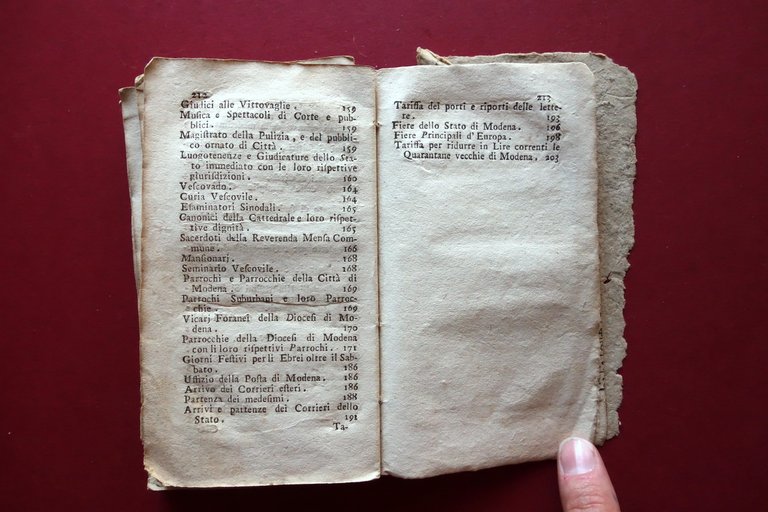 212
Giudici alle Vittovaglie. 159
Musica e Spettacoli di Corte e pub-
blici. 159
Magistrato della Pulizia, e del pubbli-
co ornato di Città. 159
Luogotenenze e Giudicature dello Sta-
to immediato con le loro rispettive
giurisdizioni. 160
Vescovado. 164
Curia Vescovile. 164
Esaminatori Sinodali. 165
Canonici della Cattedrale e loro rispet-
tive dignità. 165
Sacerdoti della Reverenda Mensa Com-
mune. 166
Mansionarj. 168
Seminario Vescovile. 168
Parrochi e Parrocchie della Città di
Modena. 169
Parrochi Suburbani e loro Parroc-
chie. 169
Vicarj Foranei della Diocesi di Mo-
dena. 170
Parrocchie della Diocesi di Modena
con li loro rispettivi Parrochi. 171
Giorni Festivi per li Ebrei oltre il Sab-
bato. 186
Uffizio della Posta di Modena. 186
Arrivo dei Corrieri esteri. 186
Partenza dei medesimi. 188
Arrivi e partenze dei Corrieri dello
Stato. 191
Ta-
213
Tariffa dei porti e riporti delle lette-
re. 193
Fiere dello Stato di Modena. 196
Fiere Principali d'Europa. 198
Tariffa per ridurre in Lire correnti le
Quarantane vecchie di Modena. 203